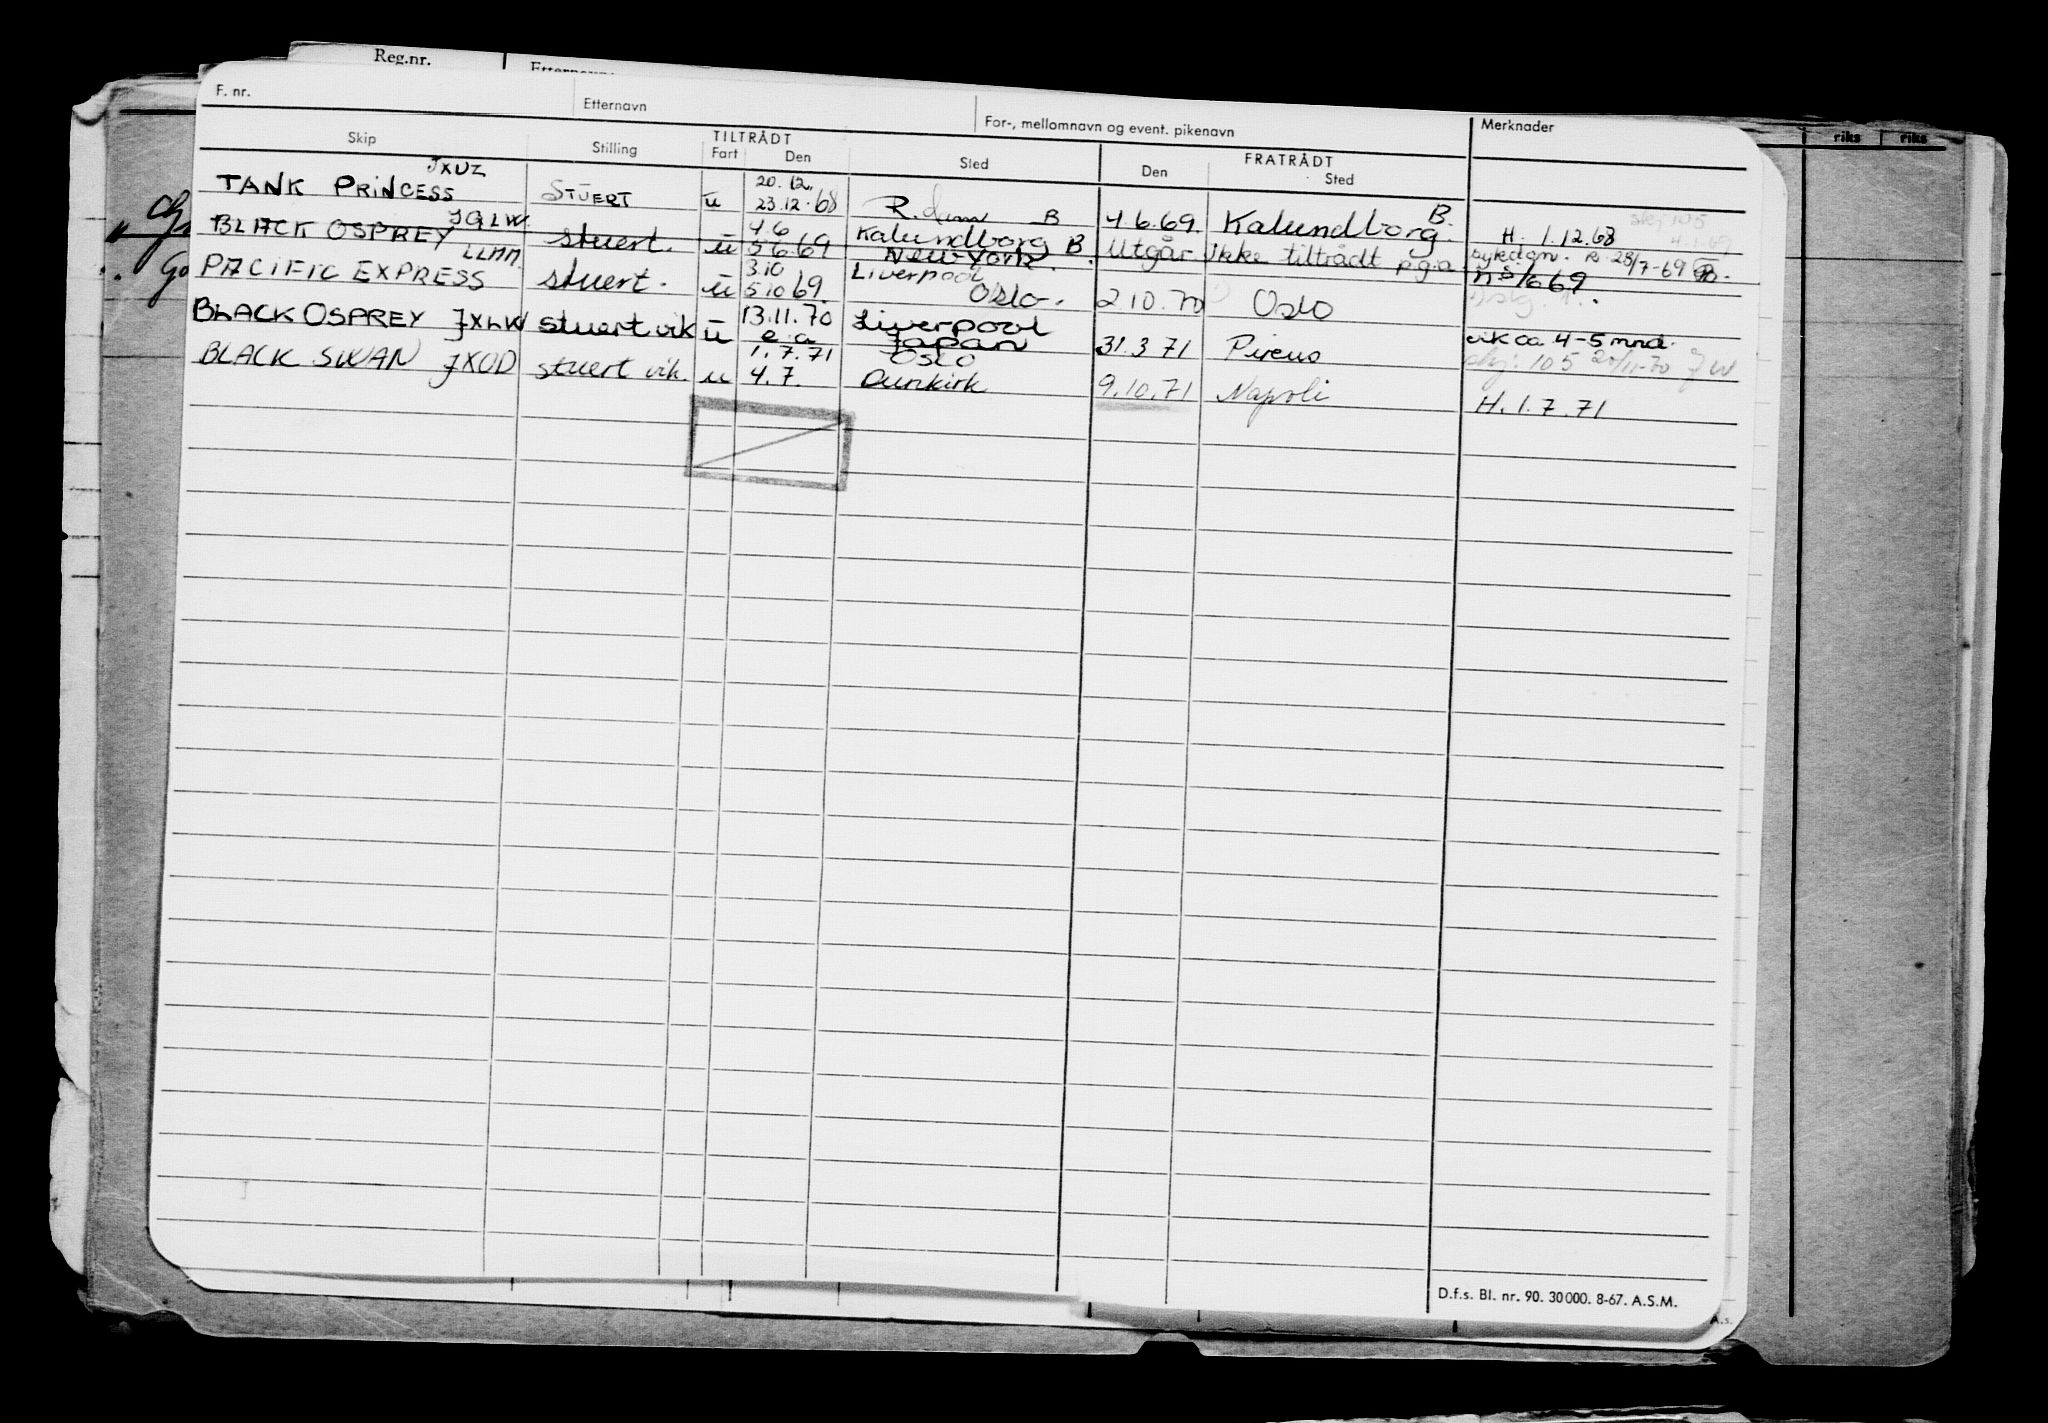 Reg.nr.
F. nr. Etternavn For-, mellomnavn og event. pikenavn Merknader
riks riks
TILTRÅDT FRATRÅDT
Skip Stilling Fart Den Sted Den Sted
JXUZ 20.12.
TANK PRINCESS STUERT u 23.12.68 R.dam B 4.6.69. Kalundborg. B. H. 1.12.68
JGLW. 4.6 Kalundborg B.
BLACK OSPREY stuert. u 5.6.69 New York. Utgår ikke tiltrådt p.g.a. sykdom. 28/7-69
LLMM 3.10 Liverpool
PACIFIC EXPRESS stuert. u 5.10 69. Oslo. 2.10.70 Oslo
13.11.70 Liverpool
BLACK OSPREY JXLW stuert vik u e.a Japan 31.3.71 Pireus vik ca. 4-5 mnd.
1.7.71 Oslo 105 20/11-70
BLACK SWAN JXOD stuert vik. u 4.7. Dunkirk 9.10.71 Napoli H. 1.7.71
D.f.s. Bl. nr. 90. 30 000. 8-67. A.S.M.
A.s.